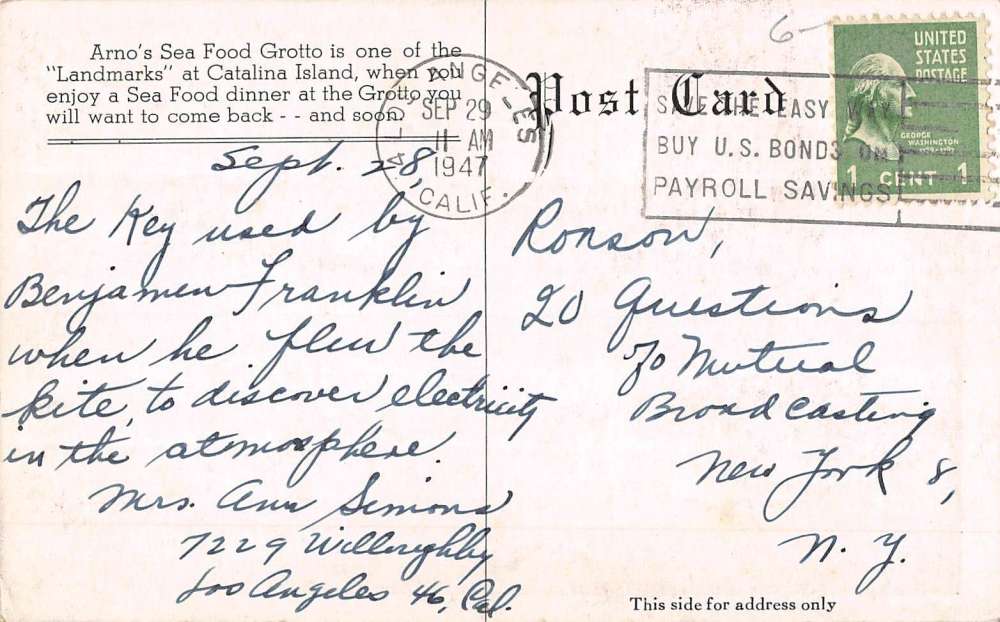 Arno's Sea Food Grotto is one of the
"Landmarks" at Catalina Island, when you
enjoy a Sea Food dinner at the Grotto you
will want to come back - - and soon.
Post Card
LOS ANGELES
SEP 29
11 AM
1947
CALIF.
SAVE THE EASY WAY
BUY U.S. BONDS ON
PAYROLL SAVINGS
6-
UNITED
STATES
POSTAGE
GEORGE
WASHINGTON
1 CENT 1
Sept. 28,
The Key used by
Benjamen Franklin
when he flew the
kite, to discover electricity
in the atmosphere.
Mrs. Ann Simons
7229 Willoughby
Los Angeles 46, Cal.
Ronson,
20 Questions
c/o Mutual
Broadcasting
New York 8,
N. Y.
This side for address only